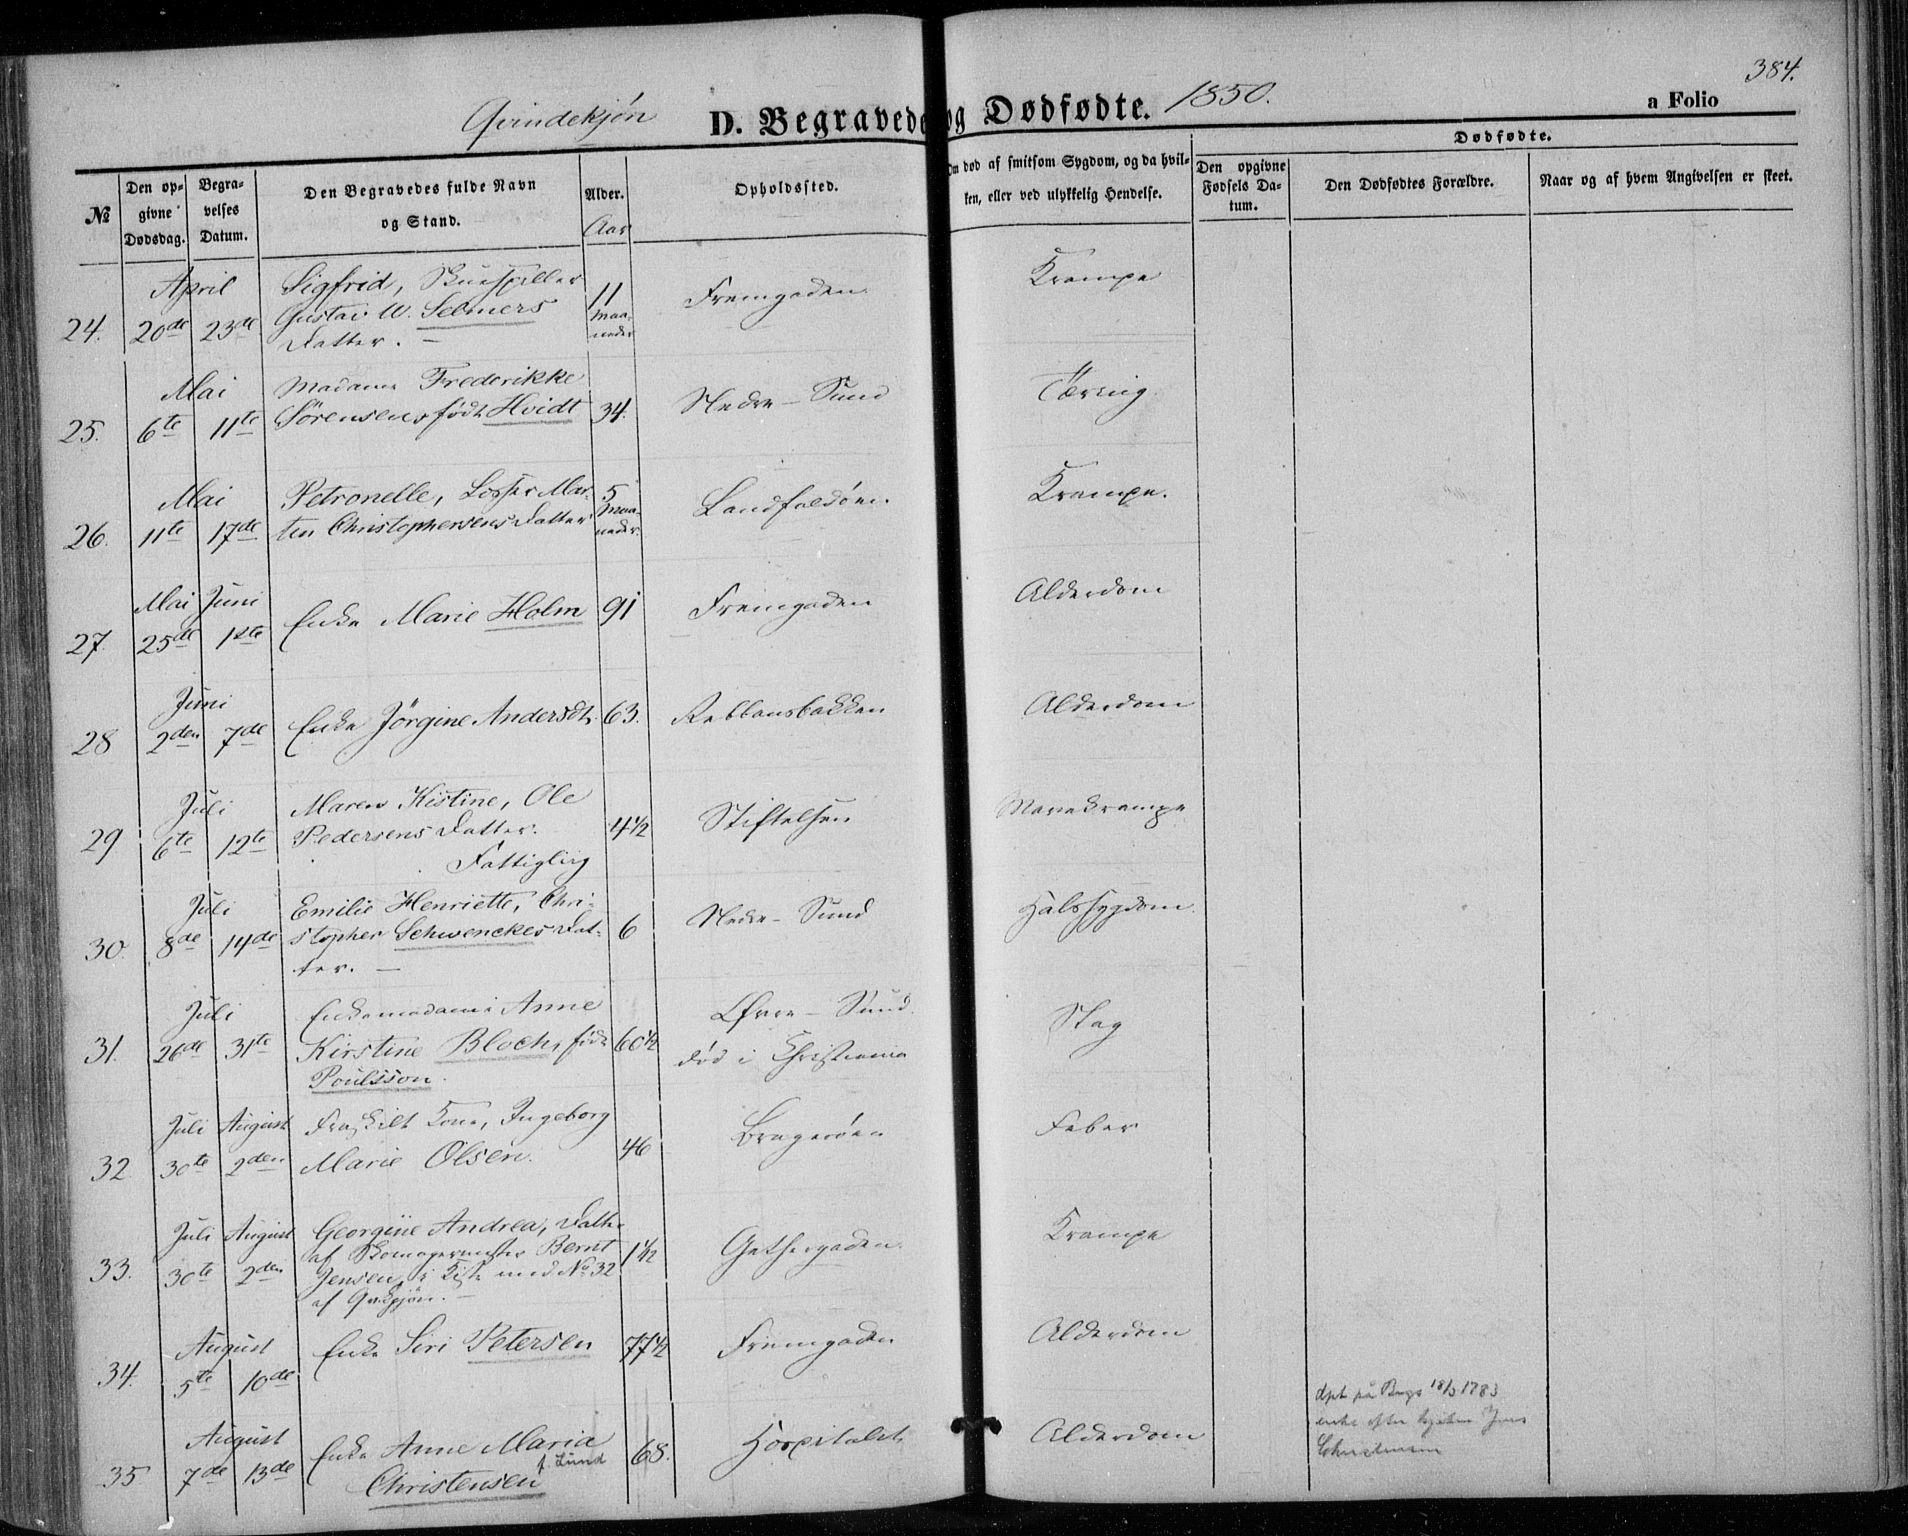 384.
Qvindekjøn D. Begravede og Dødfødte. 1850. a Folio
Dødfødte.
№ Den opgivne Dødsdag. Begravelses Datum. Den Begravedes fulde Navn og Stand. Alder. Opholdssted. Om død af smitsom Sygdom, og da hvilken, eller ved ulykkelig Hendelse. Den opgivne Fødsels Datum. Den Dødfødtes Forældre. Naar og af hvem Angivelsen er skeet.
Aar
April Sigfrid, Skuespiller 11 Fremgaden Krampe
24. 20de 23de Gustav W. Selmers maa-
Datter. — neder
Mai Madame Frederikke
25. 6te 11te Sørensen, født Hvidt 34. Nedre-Sund Tæring
Mai Petronelle, Losser Mar- 5 Landfaldøen Krampe.
26. 11te 17de tin Christophersens Datter maa-
neder.
Mai Juni
27. 25de 1ste Enke Marie Holm 91 Fremgaden Alderdom
Juni
28 2den 7de Enke Jørgine Andersdt. 63. Rebbansbakken Alderdom
Juli Maren Kistine, Ole
29 6te 12te Pedersens Datter. 4½ Stiftelsen Mavekrampe
Fattiglig
Juli Emilie Henriette, Chri-
30. 8de 14de stopher Schwenckes Dat- 6 Nedre-Sund Halssygdom.
ter. —
Juli Enkemadame Anne Øvre-Sund.
31. 26de 31te Kirstine Bloch, født 60½ død i Christiania Slag
Poulsson.
Juli August Fraskilt Kone, Ingeborg
32 30te 2den Marie Olsen. 46 Bragerøen Feber
Juli August Georgine Andrea, Datter
af Skomagermester Bernt 1½ Gethergaden. Krampe
33. 30te 2den Jensen, i Kiste med No 32
af Qvkjøn. —
August Enke Siri Petersen 77½ Fremgaden Alderdom
34. 5te 10de
August Enke Anne Maria 68. Hospitalet Alderdom
35 7de 13de f. Lund
Christensen
dpt på Brags 18/3 1783
enke efter Jens
Christensen